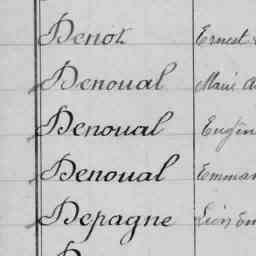 Denot Ernest
Denoual Marie
Denoual Eugén
Denoual Emman
Depagne Léon Em